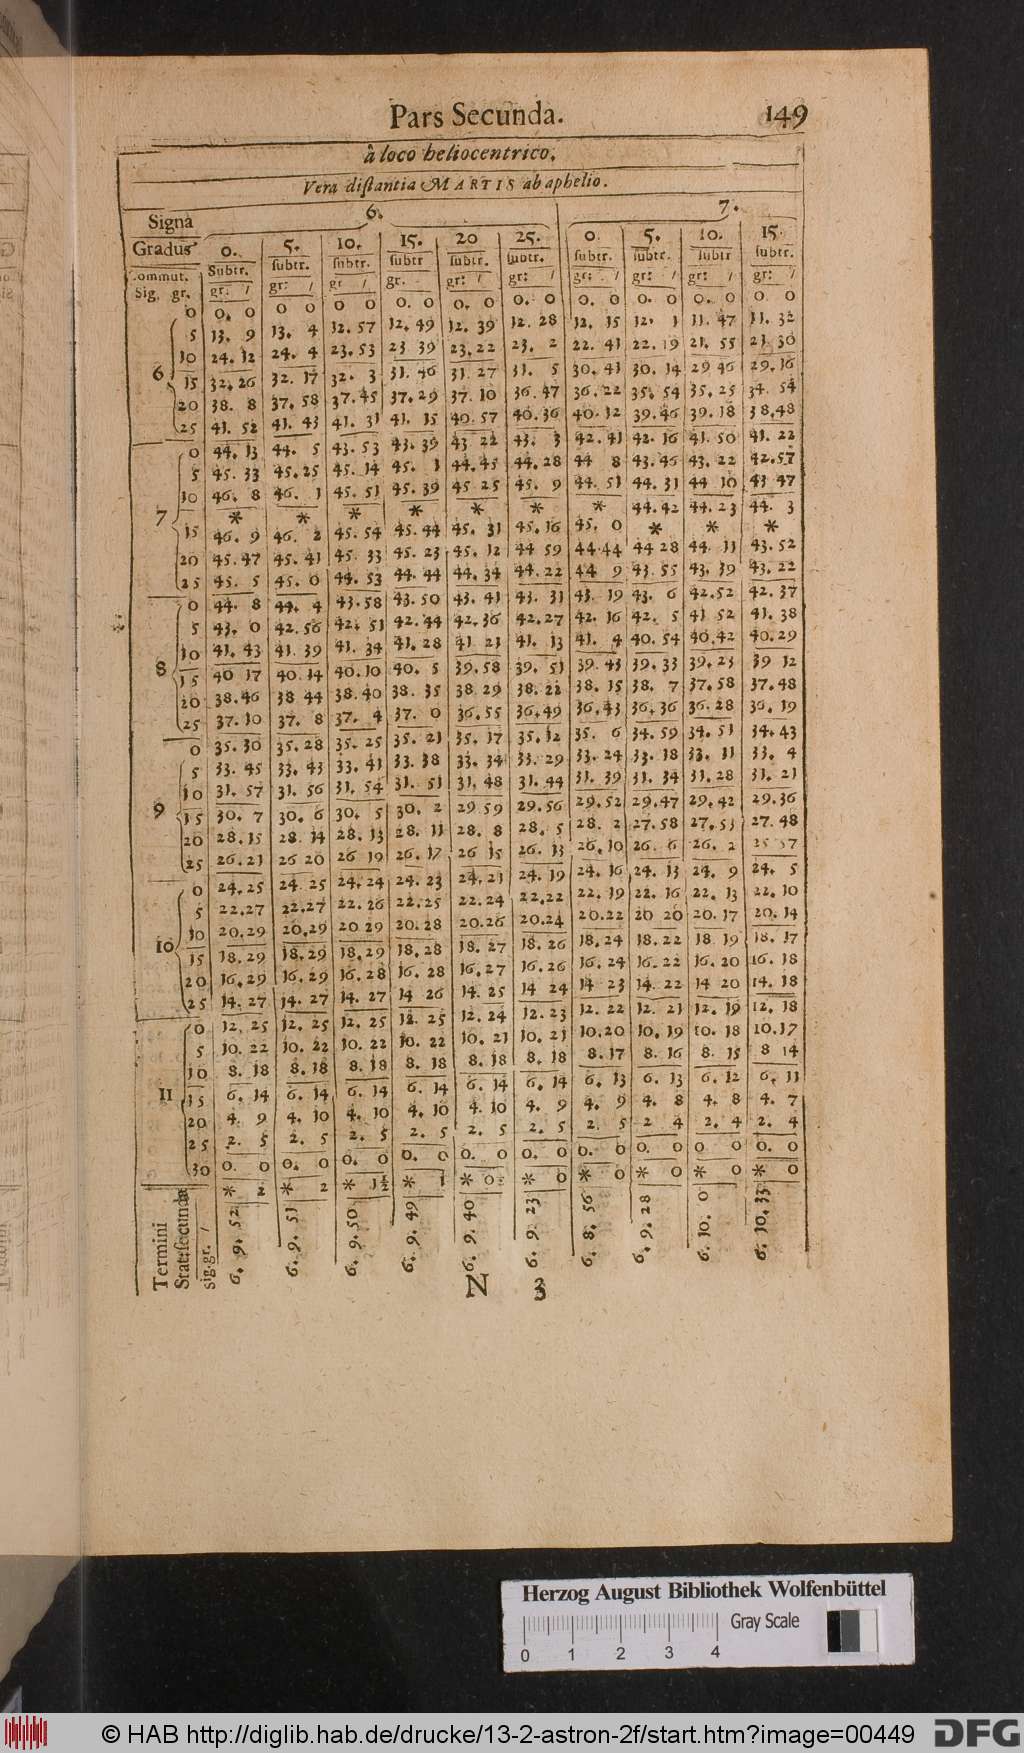 Pars Secunda. 149
à loco heliocentrico.
Vera distantia MARTIS ab aphelio.
Signa 6. 7.
Gradus 0. 5. 10. 15. 20 25. 0. 5. 10. 15.
Commut. Subtr. subtr. subtr. subtr subtr. subtr. subtr. subtr. subtr subtr.
Sig. gr. gr: / gr: / gr / gr. gr: / gr: / gr: / gr: / gr: / gr: /
0 0. 0 0 0 0 0 0. 0 0. 0 0. 0 0. 0 0. 0 0. 0 0 0
5 13. 9 13. 4 12. 57 12. 49 12. 39 12. 28 12. 15 12. 1 11. 47 11. 32
10 24. 12 24. 4 23. 53 23 39 23. 22 23. 2 22. 41 22. 19 21. 55 21 30
6 15 32. 26 32. 17 32. 3 31. 46 31. 27 31. 5 30. 41 30. 14 29 46 29. 16
20 38. 8 37. 58 37. 45 37. 29 37. 10 36. 47 36. 22 35. 54 35. 25 34. 54
25 41. 52 41. 43 41. 31 41. 15 40. 57 40. 36 40. 12 39. 46 39. 18 38. 48
0 44. 13 44. 5 43. 53 43. 39 43 22 43. 3 42. 41 42. 16 41. 50 41. 22
5 45. 33 45. 25 45. 14 45. 1 44. 45 44. 28 44 8 43. 46 43. 22 42. 57
10 46. 8 46. 1 45. 51 45. 39 45 25 45. 9 44. 51 44. 31 44 10 43 47
7 * * * * * * * 44. 42 44. 23 44. 3
15 46. 9 46. 2 45. 54 45. 44 45. 31 45. 16 45. 0 * * *
20 45. 47 45. 41 45. 33 45. 23 45. 12 44 59 44. 44 44 28 44. 11 43. 52
25 45. 5 45. 0 44. 53 44. 44 44. 34 44. 22 44 9 43. 55 43. 39 43. 22
0 44. 8 44. 4 43. 58 43. 50 43. 41 43. 31 43. 19 43. 6 42. 52 42. 37
5 43. 0 42. 56 42. 51 42. 44 42. 36 42. 27 42. 16 42. 5 41 52 41. 38
10 41. 43 41. 39 41. 34 41. 28 41 21 41. 13 41. 4 40. 54 40. 42 40. 29
8 15 40 17 40 14 40. 10 40. 5 39. 58 39. 51 39. 43 39. 33 39. 23 39 12
20 38. 46 38 44 38. 40 38. 35 38 29 38. 22 38. 15 38. 7 37. 58 37. 48
25 37. 10 37. 8 37. 4 37. 0 36. 55 36. 49 36. 43 36. 36 36. 28 36. 19
0 35. 30 35. 28 35. 25 35. 21 35. 17 35. 12 35. 6 34. 59 34. 51 34. 43
5 33. 45 33. 43 33. 41 33. 38 33. 34 33. 29 33. 24 33. 18 33. 11 33. 4
10 31. 57 31. 56 31. 54 31. 51 31. 48 31. 44 31. 39 31. 34 31. 28 31. 21
9 15 30. 7 30. 6 30. 5 30. 2 29 59 29. 56 29. 52 29. 47 29. 42 29. 36
20 28. 15 28. 14 28. 13 28. 11 28. 8 28. 5 28. 2 27. 58 27. 53 27. 48
25 26. 21 26 20 26 19 26. 17 26 15 26. 13 26. 10 26. 6 26. 2 25 57
0 24. 25 24. 25 24. 24 24. 23 24. 21 24. 19 24. 16 24. 13 24. 9 24. 5
5 22. 27 22. 27 22. 26 22. 25 22. 24 22. 22 22. 19 22. 16 22. 13 22. 10
10 20. 29 20. 29 20 29 20. 28 20. 26 20. 24 20. 22 20 20 20. 17 20. 14
10 15 18. 29 18. 29 18. 29 18. 28 18. 27 18. 26 18. 24 18. 22 18 19 18. 17
20 16. 29 16. 29 16. 28 16. 28 16. 27 16. 26 16. 24 16. 22 16. 20 16. 18
25 14. 27 14. 27 14. 27 14 26 14. 25 14 24 14 23 14. 22 14 20 14. 18
0 12. 25 12. 25 12. 25 12. 25 12. 24 12. 23 12. 22 12. 21 12. 19 12. 18
5 10. 22 10. 22 10. 22 10. 22 10. 21 10. 21 10. 20 10. 19 10. 18 10. 17
10 8. 18 8. 18 8. 18 8. 18 8. 18 8. 18 8. 17 8. 16 8. 15 8 14
11 15 6. 14 6. 14 6. 14 6. 14 6. 14 6. 14 6. 13 6. 13 6. 12 6. 11
20 4. 9 4. 10 4. 10 4. 10 4. 10 4. 9 4. 9 4. 8 4. 8 4. 7
25 2. 5 2. 5 2. 5 2. 5 2. 5 2. 5 2. 5 2 4 2. 4 2. 4
30 0. 0 0. 0 0. 0 0. 0 0. 0 0. 0 0. 0 0. 0 0 0 0. 0
* 2 * 2 * 1½ * 1 * 0 * 0 * 0 * 0 * 0 * 0
Termini
Stat: secundæ
sig. gr. / 6. 9. 52 6. 9. 51 6. 9. 50 6. 9. 49 6. 9. 40 6. 9. 23 6. 8. 56 6. 9. 28 6. 10. 0 6. 10. 33
N 3
Herzog August Bibliothek Wolfenbüttel
Gray Scale
0 1 2 3 4
© HAB http://diglib.hab.de/drucke/13-2-astron-2f/start.htm?image=00449 DFG